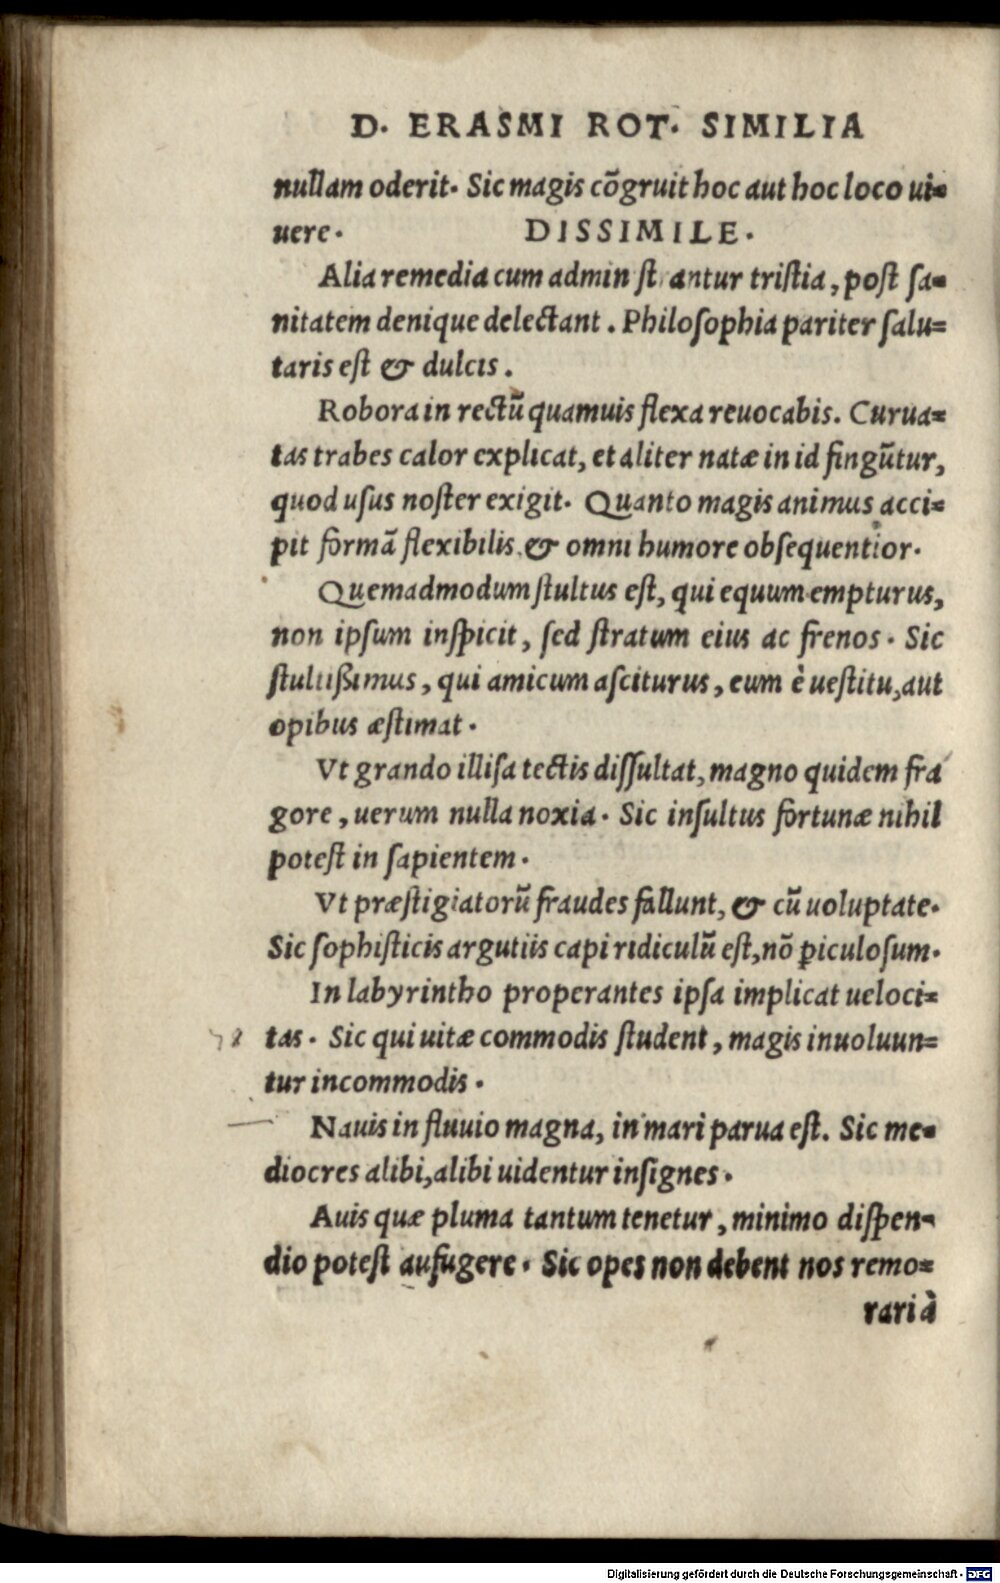 D. ERASMI ROT. SIMILIA
nullam oderit. Sic magis cōgruit hoc aut hoc loco ui=
uere. DISSIMILE.
Alia remedia cum admin ſt antur triſtia, poſt ſa=
nitatem denique delectant. Philoſophia pariter ſalu=
taris eſt & dulcis.
Robora in rectū quamuis flexa reuocabis. Curua=
tas trabes calor explicat, et aliter natæ in id fingūtur,
quod uſus noſter exigit. Quanto magis animus acci=
pit formā flexibilis, & omni humore obſequentior.
Quemadmodum ſtultus eſt, qui equum empturus,
non ipſum inſpicit, ſed ſtratum eius ac frenos. Sic
ſtultißimus, qui amicum aſciturus, eum è ueſtitu, aut
opibus æſtimat.
Vt grando illiſa tectis diſſultat, magno quidem fra
gore, uerum nulla noxia. Sic inſultus fortunæ nihil
poteſt in ſapientem.
Vt præſtigiatorū fraudes fallunt, & cū uoluptate.
Sic ſophiſticis argutiis capi ridiculū eſt, nō ꝑiculoſum.
In labyrintho properantes ipſa implicat ueloci=
tas. Sic qui uitæ commodis ſtudent, magis inuoluun=
tur incommodis.
Nauis in fluuio magna, in mari parua eſt. Sic me=
diocres alibi, alibi uidentur inſignes.
Auis quæ pluma tantum tenetur, minimo diſpen=
dio poteſt aufugere. Sic opes non debent nos remo=
rari à
Digitalisierung gefördert durch die Deutsche Forschungsgemeinschaft - DFG